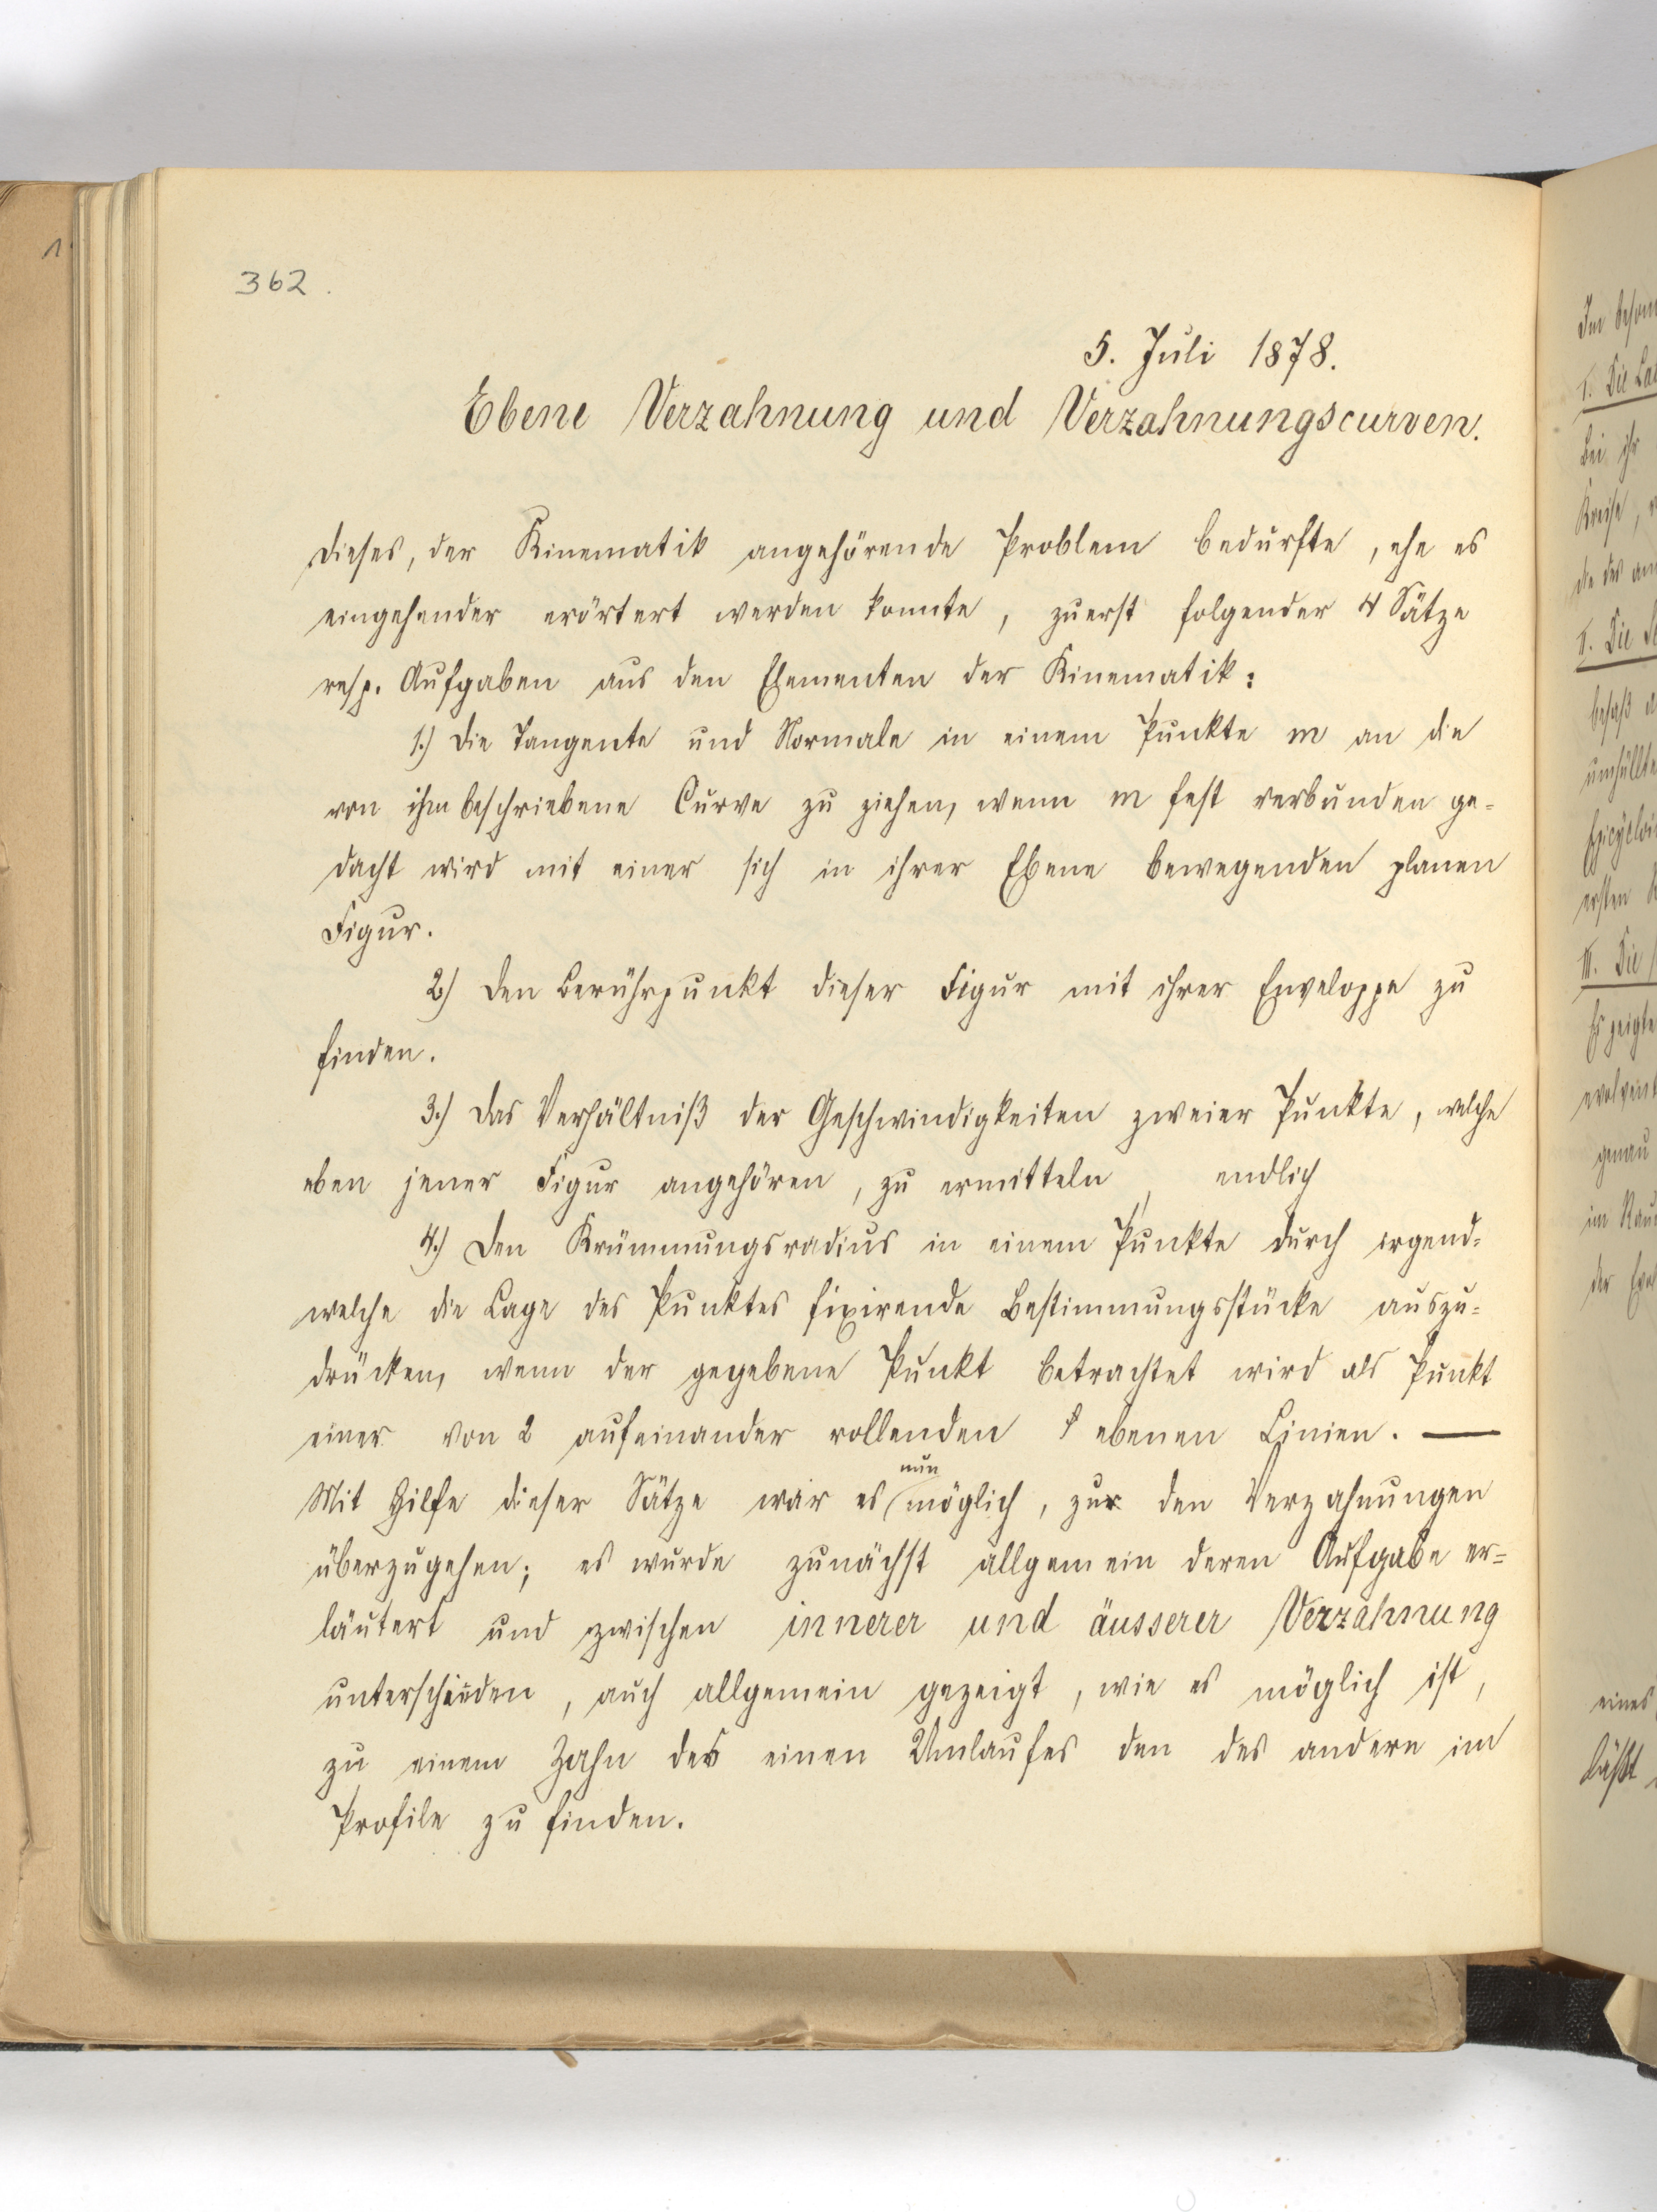 362.
5. Juli 1878.
Ebene Verzahnung und Verzahnungscurven.
Dieses, der Kinematik angehörende Problem bedurfte, ehe es
eingehender erörtert werden konnte, zuerst folgender 4 Sätze
resp. Aufgaben aus den Elementen der Kinematik:
1.) Die Tangente und Normale in einem Punkte m an die
von ihm beschriebene Curve zu ziehen, wenn m fest verbunden ge=
dacht wird mit einer sich in ihrer Ebene bewegenden planen
Figur.
2.) Den Berührpunkt dieser Figur mit ihrer Enveloppe zu
finden.
3.) Das Verhältniß der Geschwindigkeiten zweier Punkte, welche
eben jener Figur angehören, zu ermitteln, endlich
4.) Den Krümmungsradius in einem Punkte durch irgend=
welche die Lage des Punktes fixirende Bestimmungsstücke auszu=
drücken, wenn der gegebene Punkt betrachtet wird als Punkt
einer von 2 aufeinander rollenden ebenen Linien. —
Mit Hilfe dieser Sätze war es nun möglich, zu den Verzahnungen
überzugehen; es wurde zunächst allgemein deren Aufgabe er=
läutert und zwischen innerer und äusserer Verzahnung
unterschieden, auch allgemein gezeigt, wie es möglich ist,
zu einem Zahn des einen Umlaufes den des andern im
Profile zu finden.